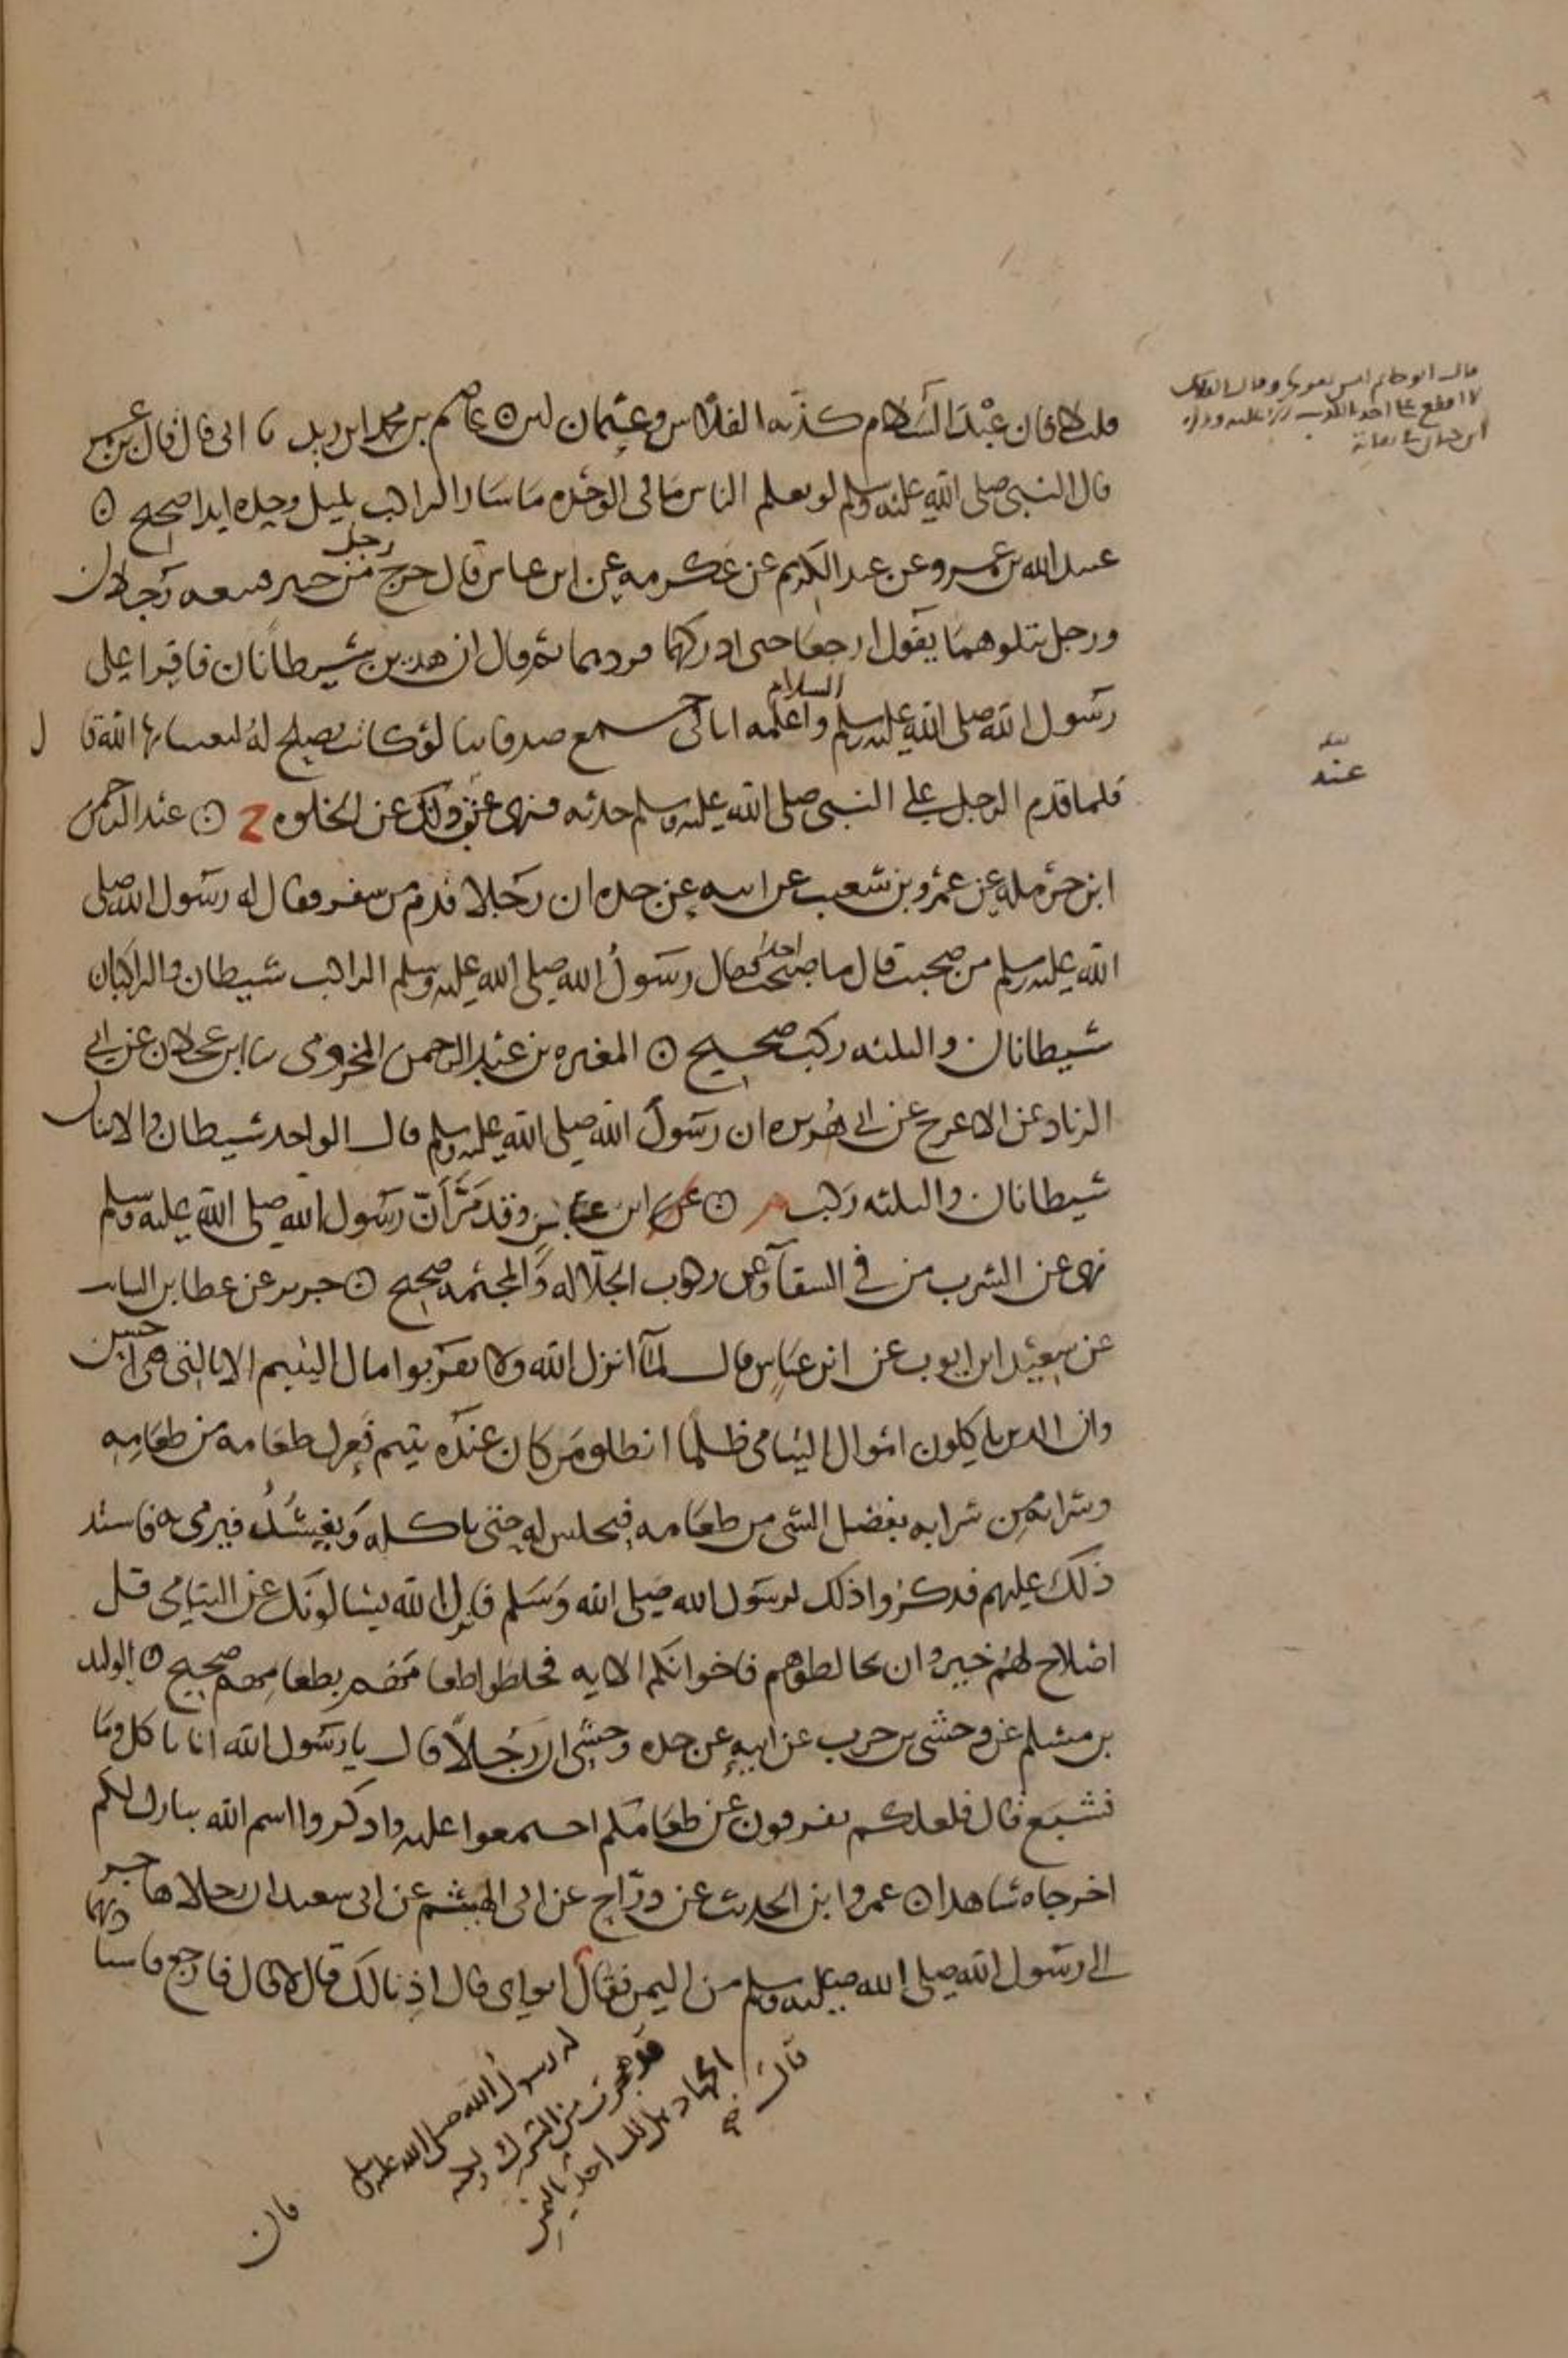 قلت لا فان عبد السلام كذبه الفلاس وعثمان لين ۞ عاصم بن محمد ابن زيد نا ابى قال قال ابن عمر
قال النبى صلى الله عليه وسلم لو يعلم الناس ما فى الوحده ما سار الراكب بليل وحده ابدا صحيح ۞
عبيد الله بن عمرو عن عبد الكريم عن عكرمه عن ابن عباس قال خرج رجل من خيبر فتبعه رجلان
ورجل يتلوهما يقول ارجعا حتى ادركهما فردهما ثم قال ان هذين شيطانان فاقرا على
رسول الله صلى الله عليه وسلم السلام واعلمه انا فى جمع صدقاتنا لو كانت تصلح له لبعثنا بها اليه قال
فلما قدم الرجل على النبى صلى الله عليه وسلم حدثه فنهى عند ذلك عن الخلوه خ ۞ عبد الرحمن
ابن حرمله عن عمرو بن شعيب عن ابيه عن جده ان رجلا قدم من سفر فقال له رسول الله صلى
الله عليه وسلم من صحبت قال ما صحبت احدا فقال رسول الله صلى الله عليه وسلم الراكب شيطان والراكبان
شيطانان والثلثه ركب صحيح ۞ المغيره بن عبد الرحمن المخزومى نا ابن عجلان عن ابى
الزناد عن الاعرج عن ابى هريره ان رسول الله صلى الله عليه وسلم قال الواحد شيطان والاثنان
شيطانان والثلثه ركب م ۞ عن ابن عباس وقد مر ان رسول الله صلى الله عليه وسلم
نهى عن الشرب من فى السقآ وعن ركوب الجلاله والمجثمه صحيح ۞ جرير عن عطا بن السايب
عن سعيد ابن ايوب عن ابن عباس قال لمآ انزل الله ولا تقربوا مال اليتيم الا بالتى هى احسن
وان الذين ياكلون اموال اليتامى ظلما انطلق من كان عنده يتيم فعزل طعامه من طعامه
وشرابه من شرابه يفضل الشى من طعامه فيحبس له حتى ياكله ويفسد فيرمى به فاشتد
ذلك عليهم فذكروا ذلك لرسول الله صلى الله وسلم فانزل الله يسالونك عن اليتامى قل
اصلاح لهم خير وان تخالطوهم فاخوانكم الايه فخلطوا طعامهم بطعامهم صحيح ۞ الوليد
بن مسلم عن وحشى بن حرب عن ابيه عن جده وحشى ان رجلا قال يا رسول الله انا ناكل وما
نشبع قال فلعلكم تفرقون عن طعامكم اجتمعوا عليه واذكروا اسم الله يبارك لكم
اخرجاه شاهدا ۞ عمرو ابن الحديث عن دراج عن ابى الهيثم عن ابى سعيد ان رجلا هاجر
الى رسول الله صلى الله عليه وسلم من اليمن فقال ابواى قال اذنا لك قال لا قال فارجع فاستاذنهما
له رسول الله صلى الله عليه وسلم
قد هجرت من الشرك
الجهاد هل لك احد باليمن
قال
قال ابو حاتم ليس بقوى وقال الفلاس
لا اقطع على احد بالكذب
ابن حبان
عند